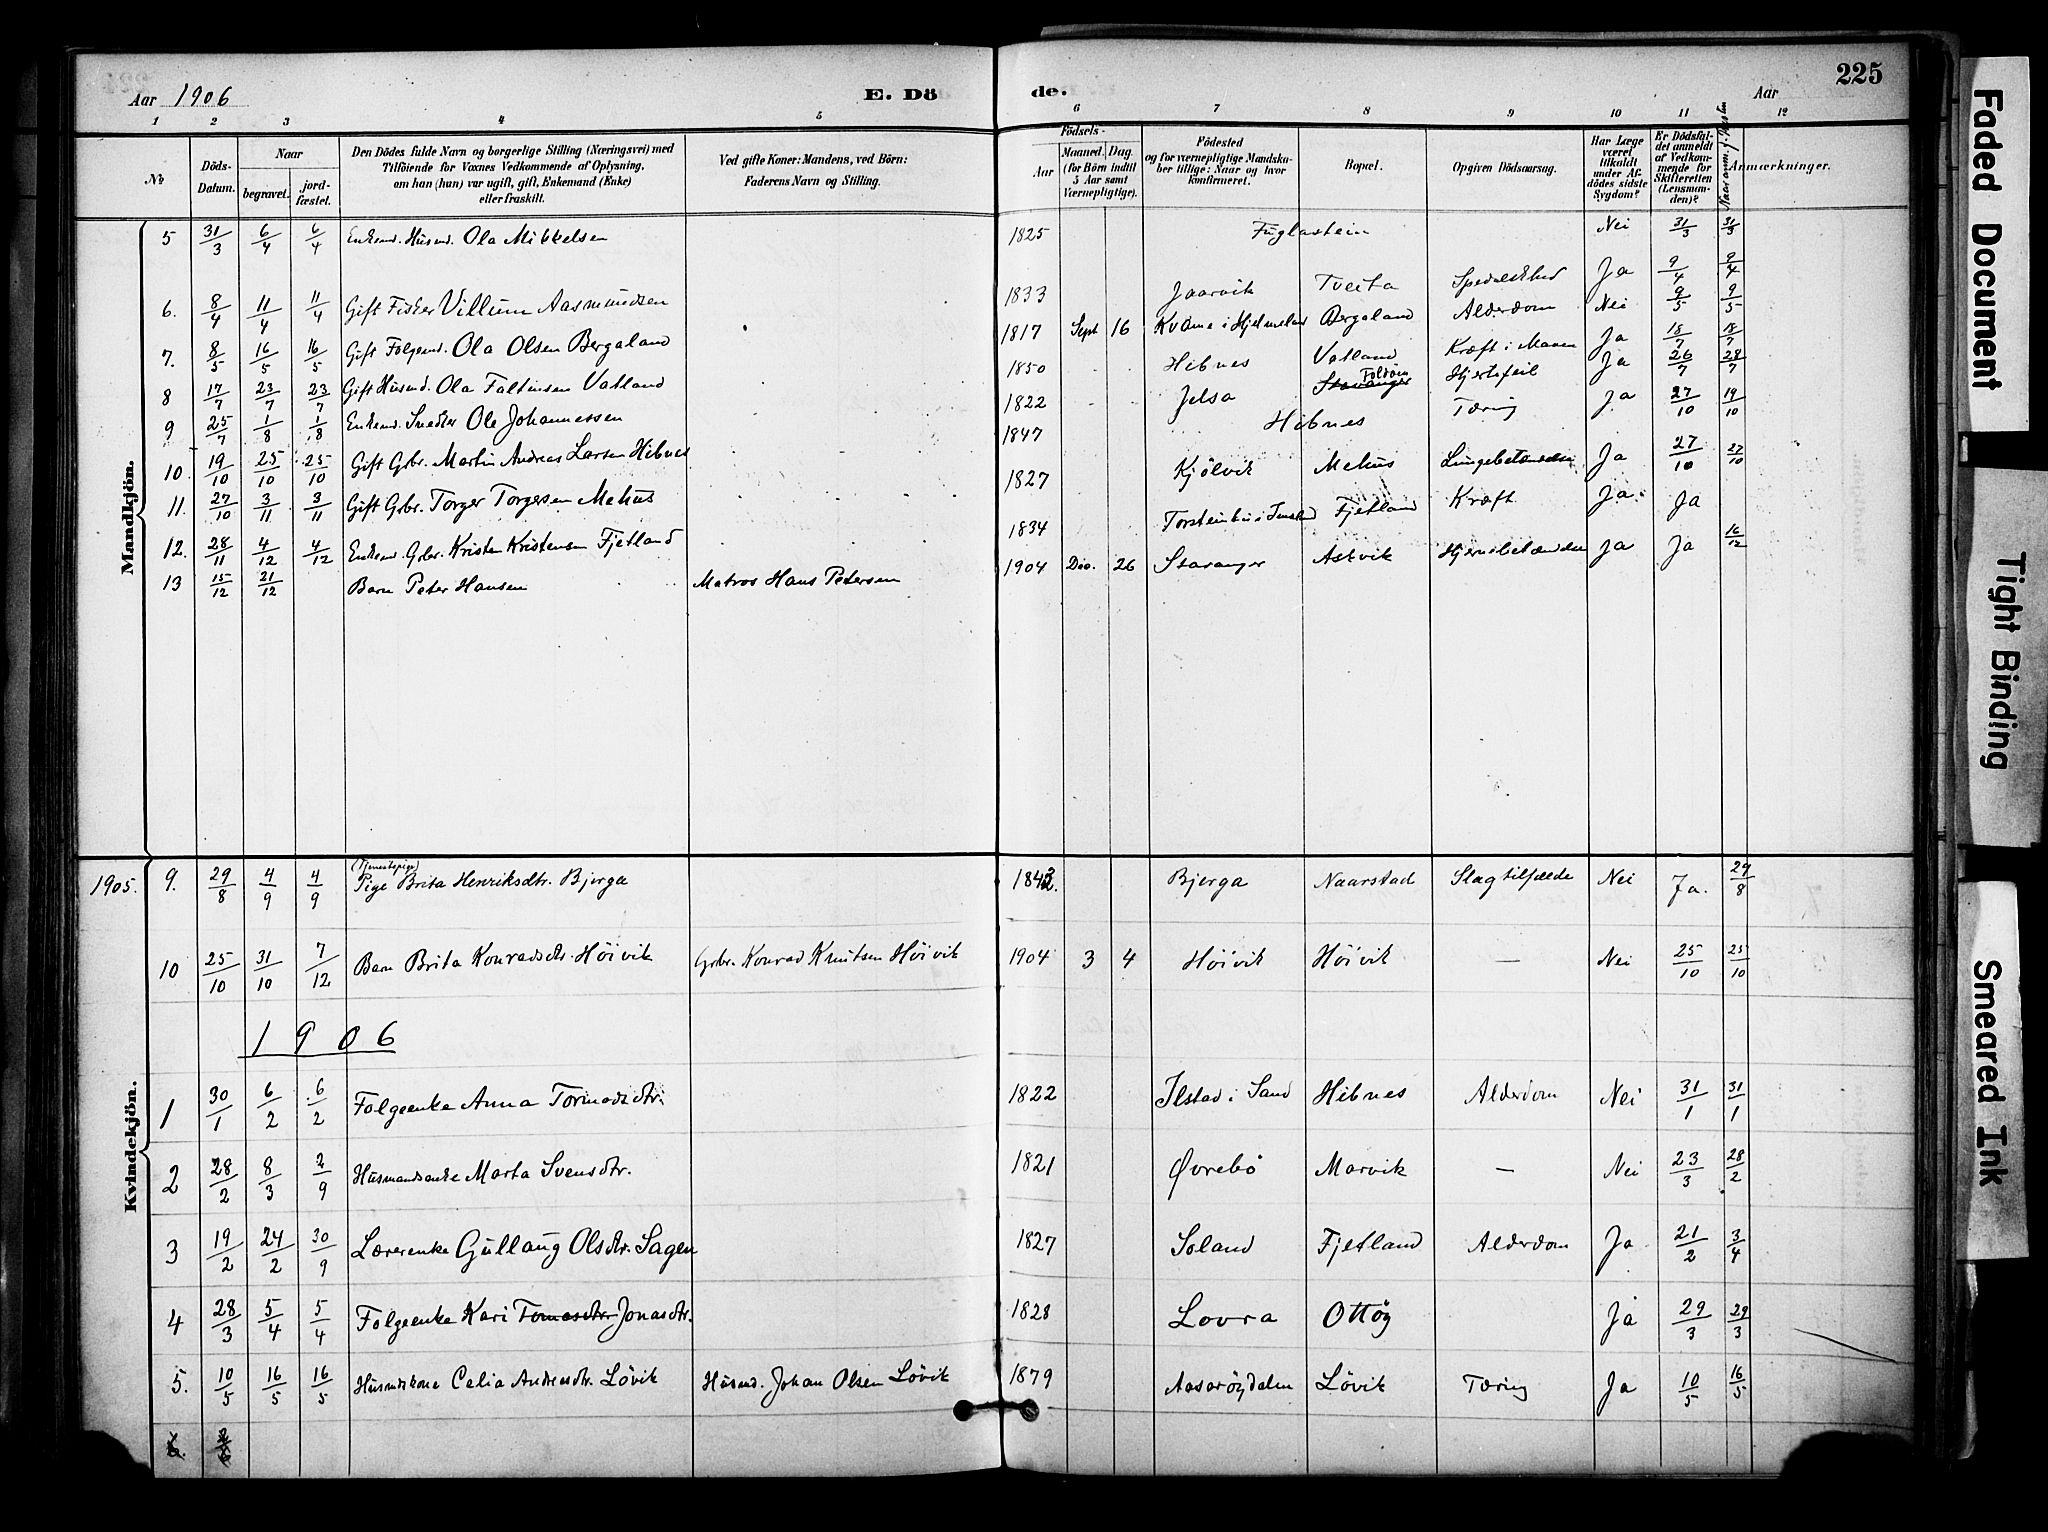 Aar 1906 E. Dö de. Aar 225
1 2 3 4 5 6 7 8 9 10 11 12
No
Döds-Datum.
Naar
begravet.
jord-fæstet.
Den Dödes fulde Navn og borgerlige Stilling (Næringsvei) med
Tilföiende for Voxnes Vedkommende af Oplysning,
om han (hun) var ugift, gift, Enkemand (Enke)
eller fraskilt.
Ved gifte Koner: Mandens, ved Börn:
Faderens Navn og Stilling.
Födsels-
Aar
Maaned. Dag.
(for Börn indtil
5 Aar samt
Værnepligtige).
Födested
og for værnepligtige Mandska-
ber tillige: Naar og hvor
konfirmeret.
Bopæl.
Opgiven Dödsaarsag.
Har Læge
været
tilkaldt
under Af-
dödes sidste
Sygdom?
Er Dödsfal-
det anmeldt
af Vedkom-
mende for
Skifteretten
(Lensman-
den)?
Anmærkninger.
Mandkjön.
5 31/3 6/4 6/4 Enkemd. Husmd. Ola Mikkelsen 1825 Fuglastein Nei 31/3 31/3
6. 8/4 11/4 11/4 Gift Fisker Villum Aasmundsen 1833 Jaarvik Tveita Spedalskhed Ja 9/4 9/4
7. 8/5 16/5 16/5 Gift Folgemd. Ola Olsen Bergaland 1817 Sept 16 Kvame i Hjelmeland Bergaland Alderdom Nei 9/5 9/5
8 17/7 23/7 23/7 Gift Husmd. Ola Faltinsen Vatland 1850 Hibnes Vatland Kræft i Maven Ja 18/7 18/7
9 25/7 1/8 1/8 Enkemd. Snedker Ole Johannessen 1822 Jelsa Stavanger Foldøen Hjertefeil Ja 26/7 28/7
10 19/10 25/10 25/10 Gift Gbr. Martin Andreas Larsen Hibnes 1847 Hibnes Tæring Ja 27/10 19/10
11. 27/10 3/11 3/11 Gift Gbr. Torger Torgersen Mehus 1827 Kjölvik Mehus Lungebetændelse Ja 27/10 27/10
12. 28/11 4/12 4/12 Enkemd. Gbr. Kristen Kristensen Fjetland 1834 Fjetland Kræft Ja Ja
13 15/12 21/12 Barn Peter Hansen Matros Hans Petersen 1904 Dec. 26 Stavanger Askvik Hjernebetændelse Ja Ja 16/12
Kvindekjön.
1905. 9. 29/8 4/9 4/9 (Tjenestepige) Pige Brita Henriksdtr. Bjerga 1842. Bjerga Naarstad Slagtilfælde Nei Ja. 29/8
10 25/10 31/10 7/12 Barn Brita Konradsdtr. Höivik Grbr. Konrad Knutsen Höivik 1904 3 4 Höivik Höivik — Nei 25/10 25/10
1906
1 30/1 6/2 6/2 Folgeenke Anna Tormodsdtr. 1822 Ilstad i Sand Hibnes Alderdom Nei 31/1 31/1
2 28/2 8/3 2/9 Husmandsenke Marta Svensdtr. 1821 Øvrebö Marvik — Nei 23/3 28/2
3 19/2 24/2 30/9 Lærerenke Gjullaug Olsdtr. Sagen 1827 Soland Fjetland Alderdom Ja 21/2 3/4
4 28/3 5/4 5/4 Folgeenke Kari Tomasdtr Jonasdtr. 1828 Lovra Ottöy Ja 29/3 29/3
5. 10/5 16/5 16/5 Husmdskone Celia Andreasdtr. Lövik Husmd. Johan Olsen Lövik 1879 Aasaröydalen Lövik Tæring Ja 10/5 16/5
Faded Document
Tight Binding
Smeared Ink